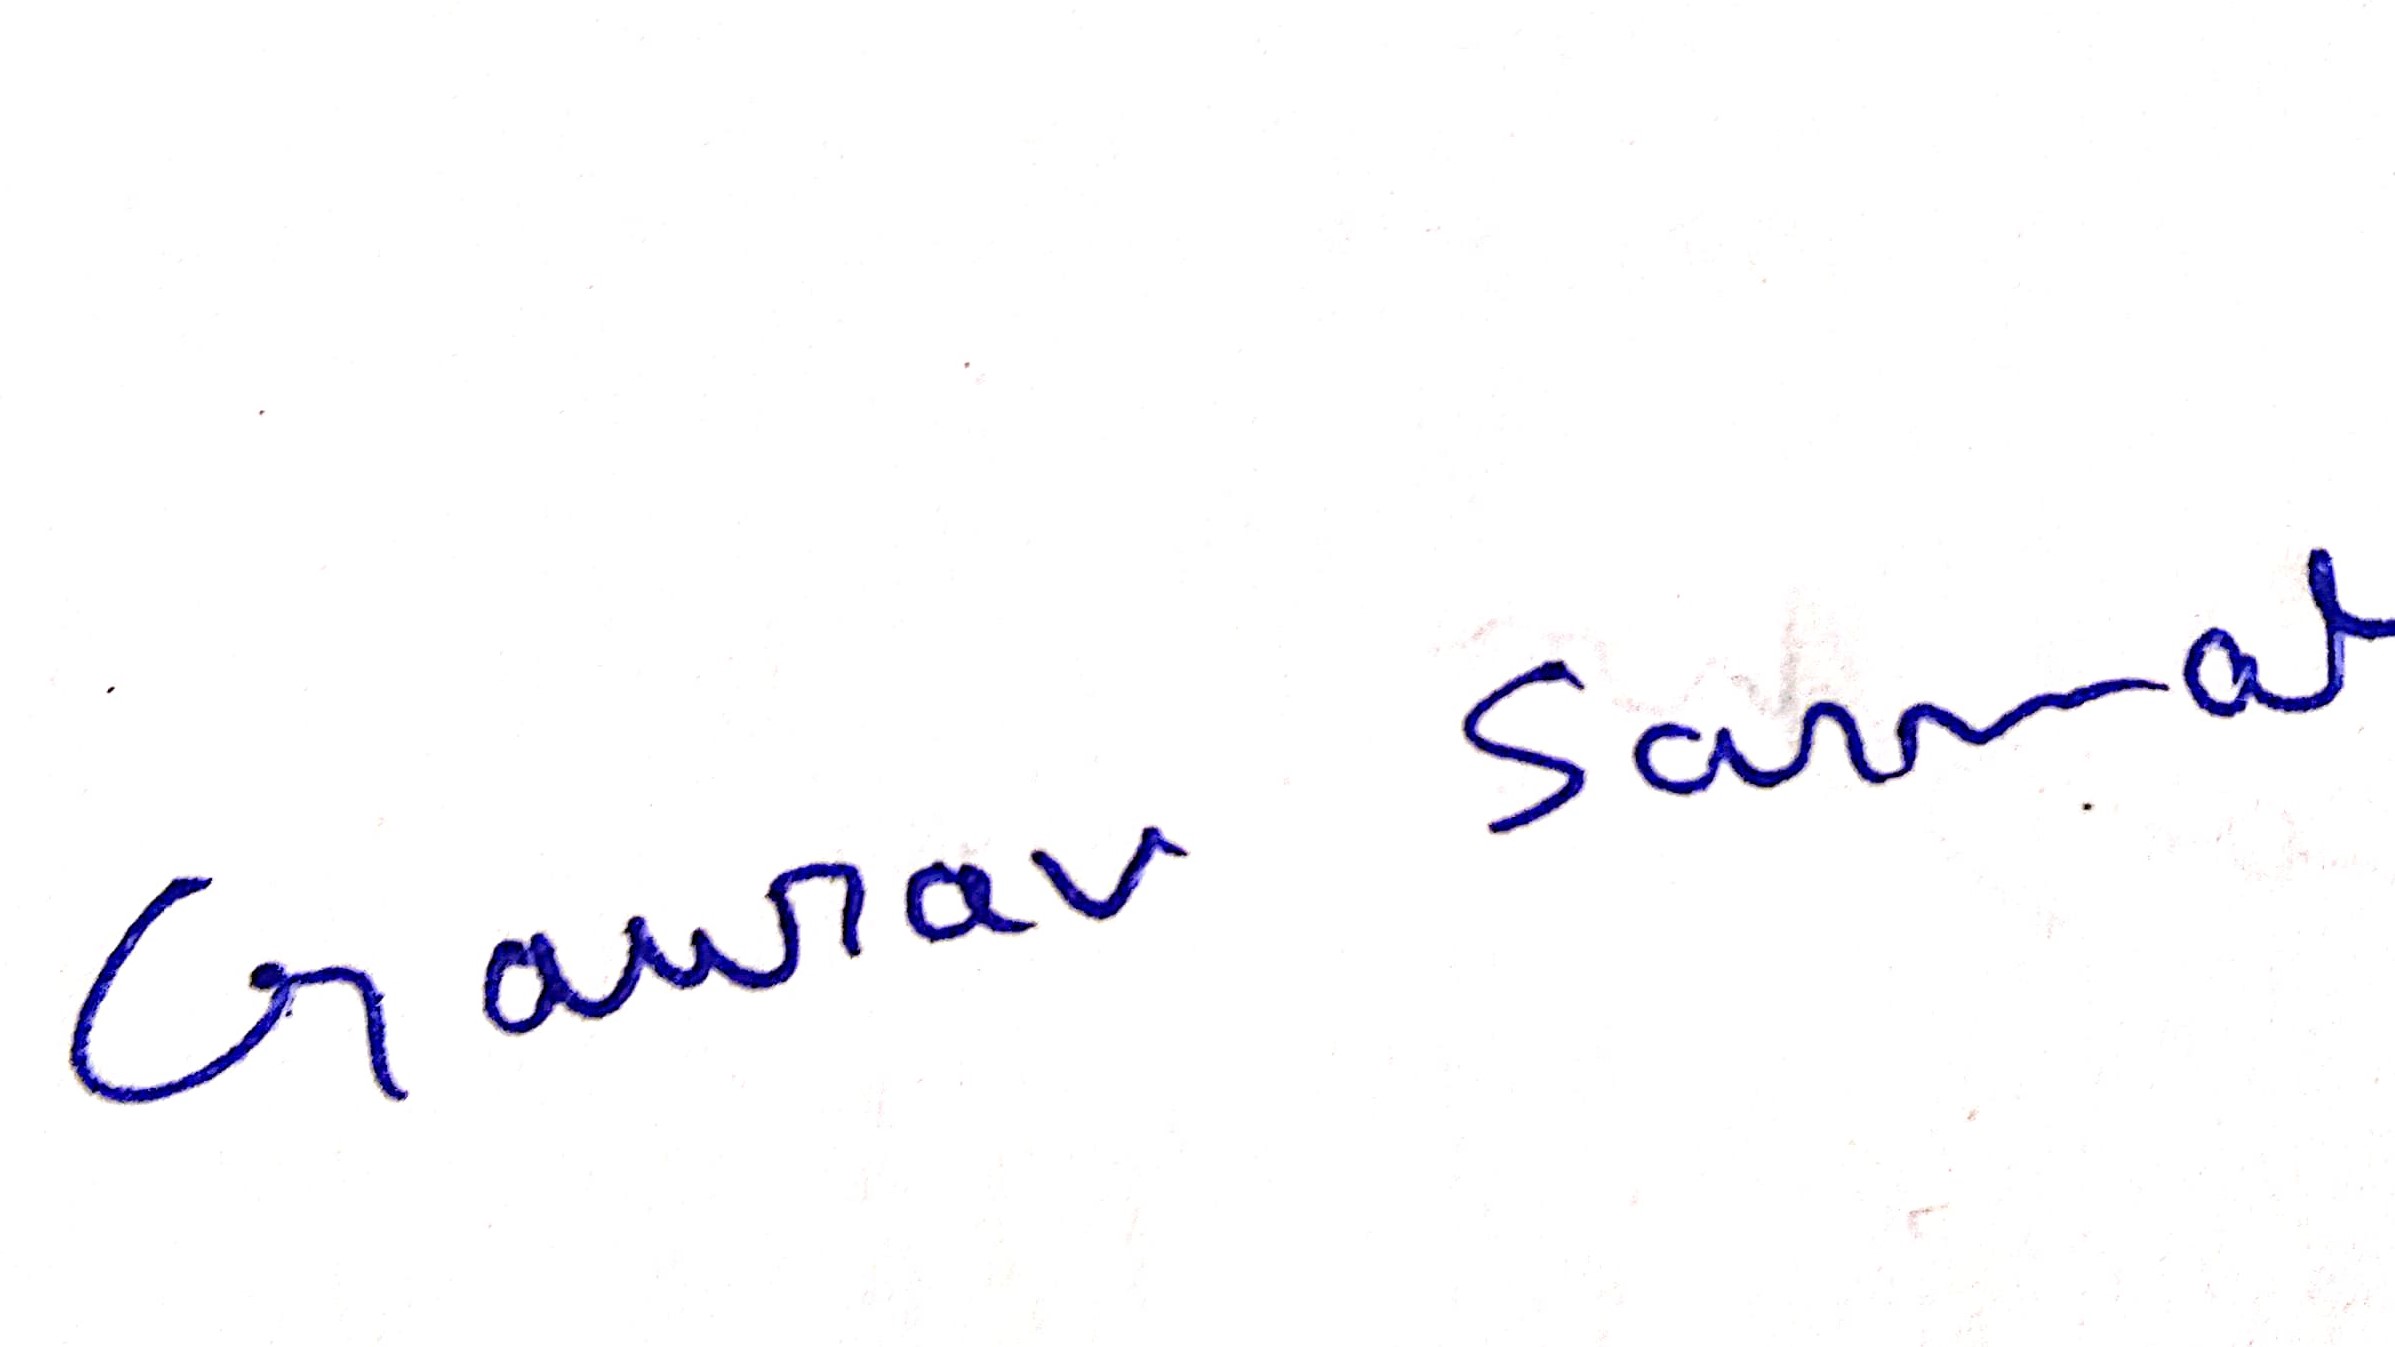 Gaurav Samrat